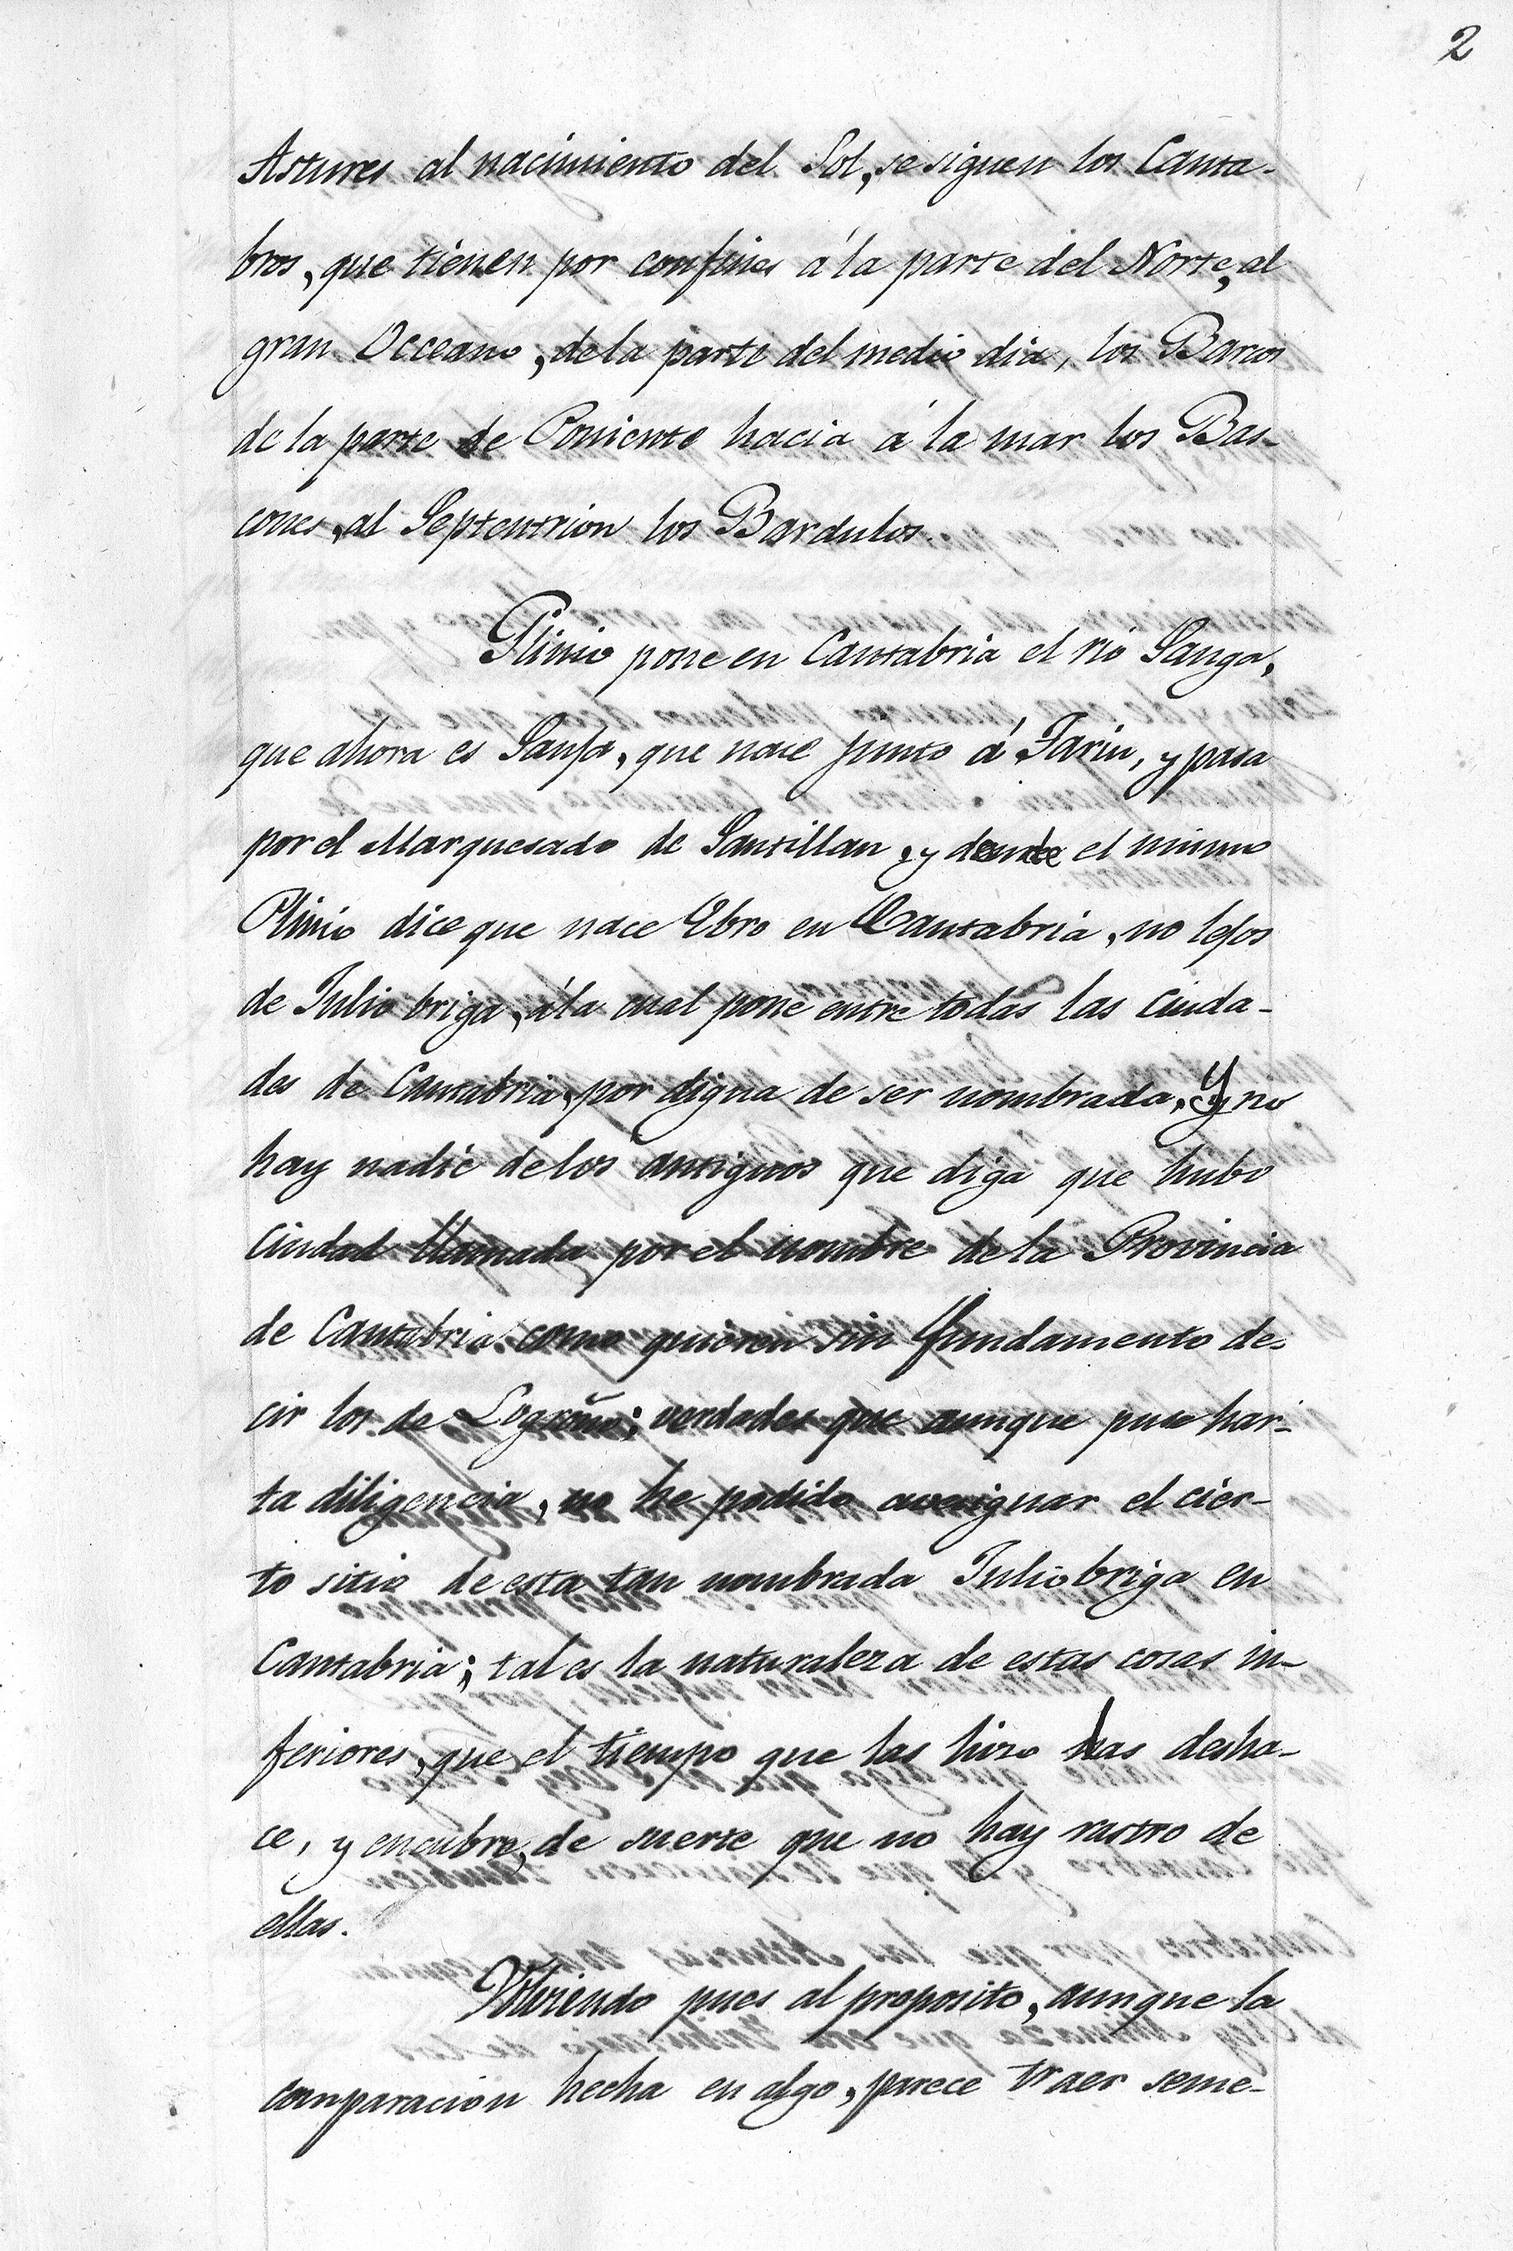 2
Astures al nacimiento del Sol, se siguen los Canta-
bros, que tienen por confines á la parte del Norte, al
gran Occeano, de la parte del medio dia, los Barcos
de la parte de Poniente hacia á la mar los Bas-
cones, al Septentrion los Bardulos.
Plinio pone en Cantabria el rio Sanga,
que ahora es Sanja, que nace junto á Tariu, y pasa
por el Marquesado de Santillan, y donde el mismo
Plinio dice que nace Ebro en Cantabria, no lejos
de Julio briga, á la cual pone entre todas las ciuda-
des de Cantabria, por digna de ser nombrada, Y no
hay nadie de los antiguos que diga que hubo
Ciudad llamada por el nombre de la Provincia
de Cantabria como quieren sin fundamento de-
cir los de Logroño; verdades que aunque puse har-
ta diligencia, no he podido averiguar el cier-
to sitio de esta tan nombrada Juliobriga en
Cantabria; tal es la naturaleza de estas cosas in-
feriores, que el tiempo que las hizo las desha-
ce, y encubre, de suerte que no hay rastro de
ellas.
Volviendo pues al proposito, aunque la
comparacion hecha en algo, parece traer seme-